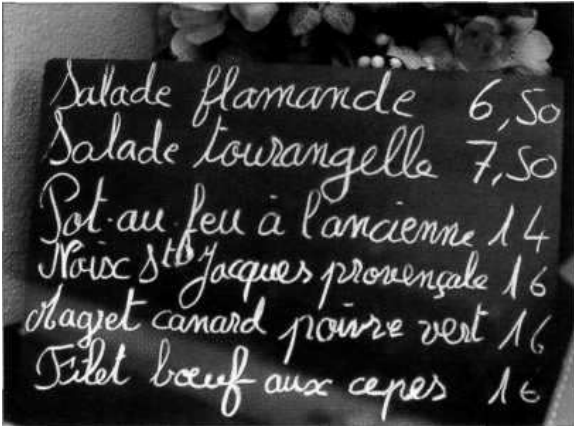 Salade flamande 6,50
Salade tourangelle 7,50
Pot-au-feu à l'ancienne 14
Noix Stb Jacques provençale 16
Magret canard poivre vert 16
Filet bœuf aux cepes 16